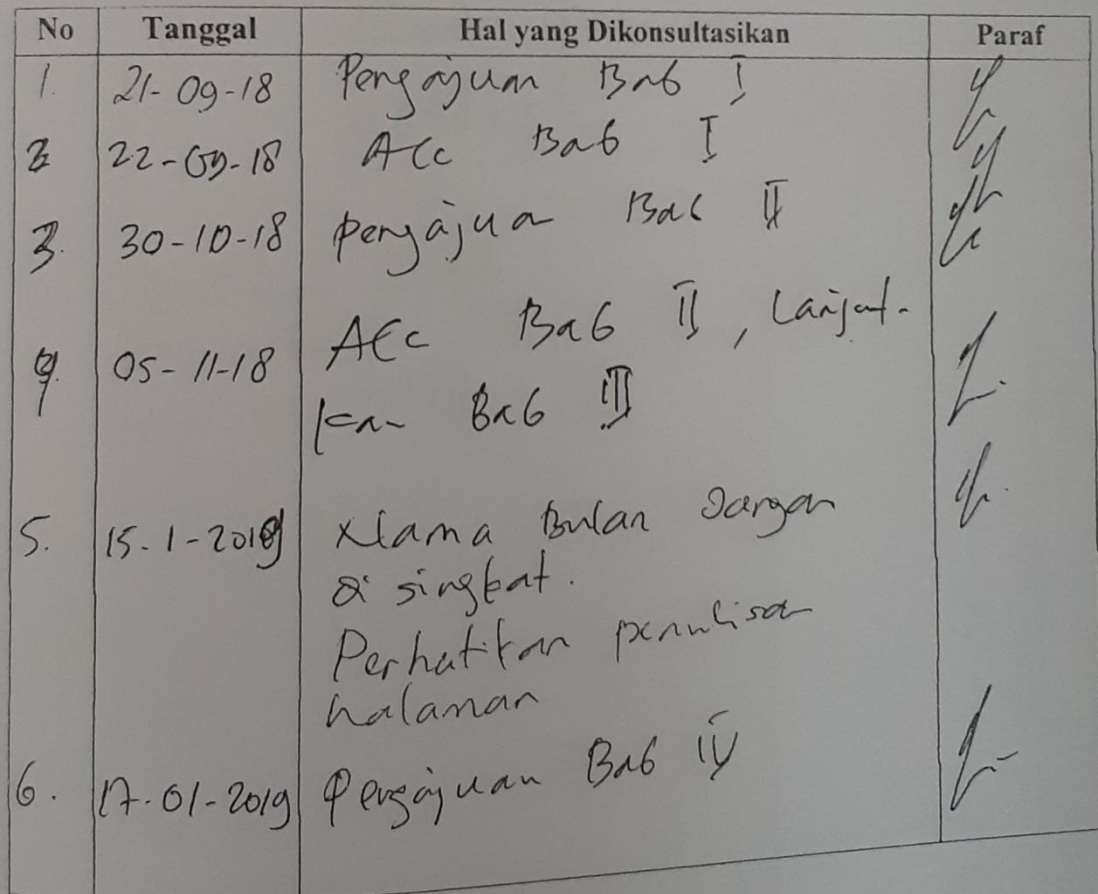 No Tanggal Hal yang Dikonsultasikan Paraf
1. 21-09-18 Pengajuan Bab I
2 22-09-18 ACC Bab I
3. 30-10-18 pengajuan Bab II
4. 05-11-18 ACC Bab II, Lanjut-
kan Bab III
5. 15-1-2019 Nama Bulan Jangan
di singkat.
Perhatikan penulisan
halaman
6. 17-01-2019 Pengajuan Bab IV